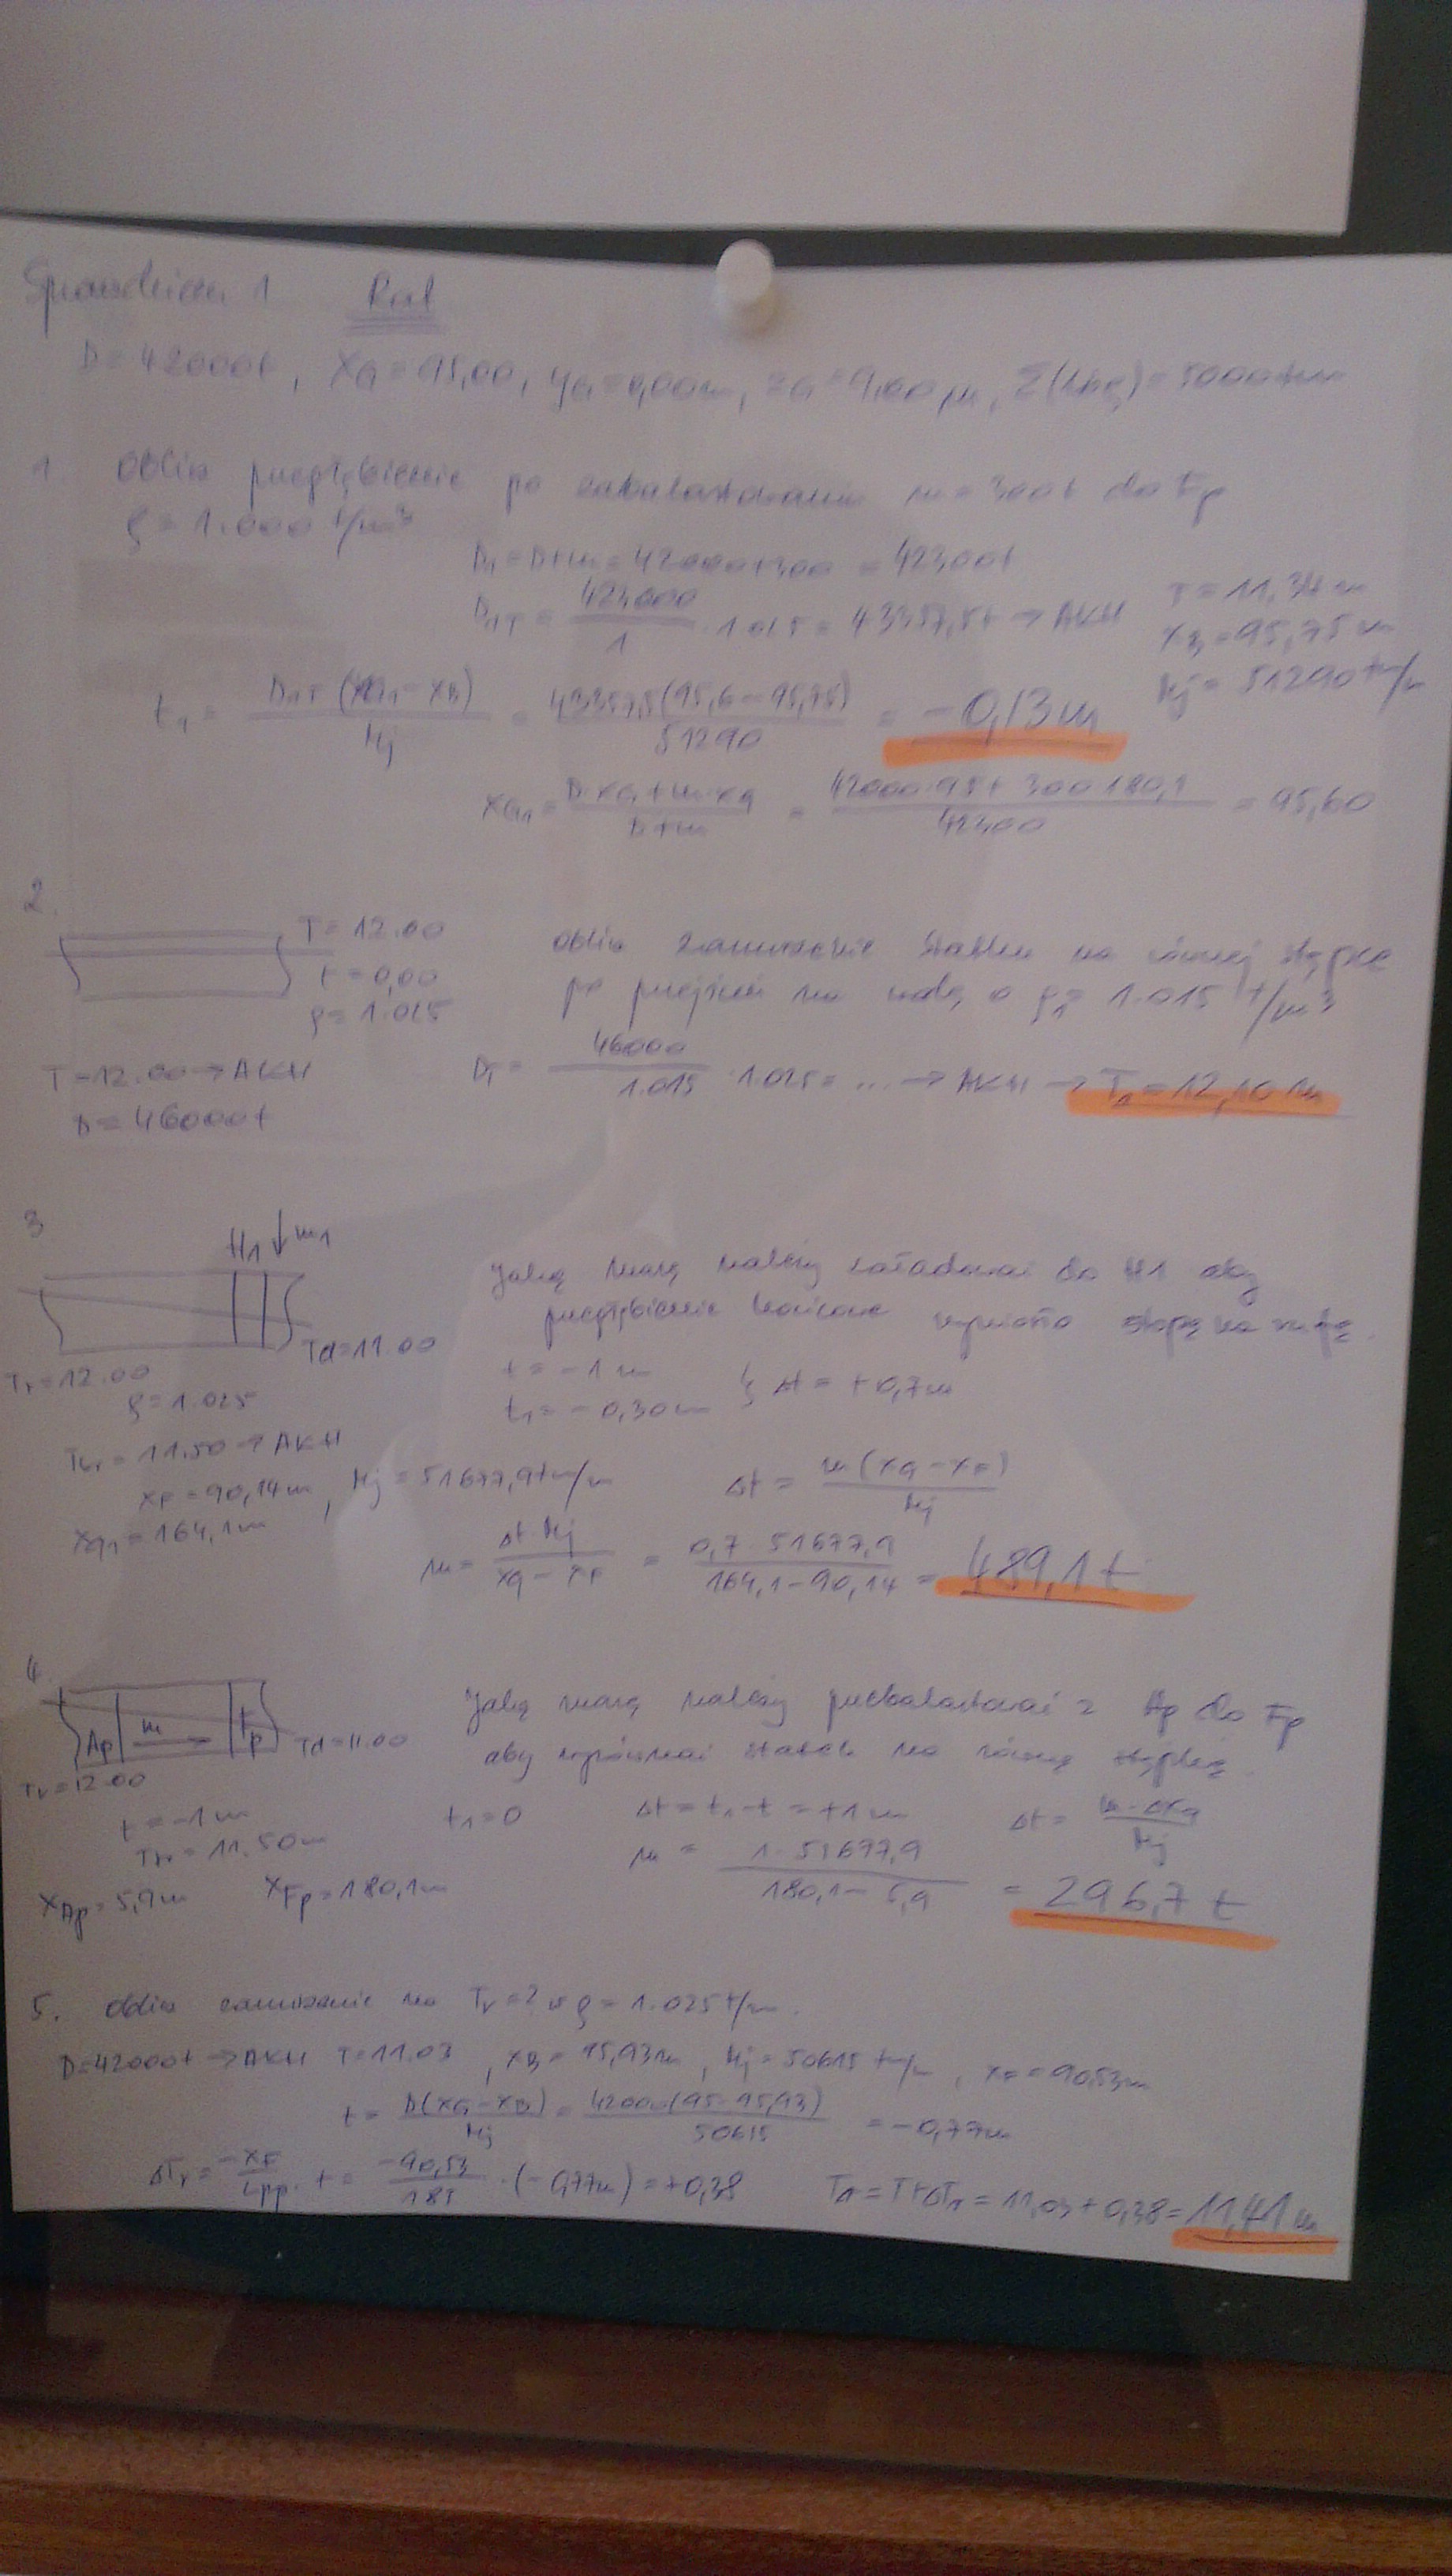 Sprawdzian 1 Rat
D = 42000t, XG = 95,00, yG = 0,00m, zG = 9,00 m, Σ(Δhς) = 5000 tm
1. Oblicz przegłębienie po zabalastowaniu m = 300t do Fp
ρ = 1.000 t/m³
D1 = D+m = 42000+300 = 42300t
T = 11,34 m
D1T = 423000 / 1 · 1.025 = 43357,5t → AKH
xB = 95,75 m
Mj = 51290 tm/m
t1 = D1T (xG1 - xB) / Mj = 43357,5 (95,6 - 95,75) / 51290 = -0,13m
xG1 = D·xG + m·xg / D+m = 42000·95 + 300·180,1 / 42300 = 95,60
2.
T = 12.00
t = 0,00
ρ = 1.025
Oblicz zanurzenie statku na równej stępce
po przejściu na wodę o ρ1 = 1.015 t/m³
T = 12.00 → AKH
D = 46000t
DT = 46000 / 1.015 · 1.025 = ... → AKH → T1 = 12,10 m
3
H1 ↓ m1
Td = 11.00
Tr = 12.00
ρ = 1.025
Jaką masę należy załadować do H1 aby
przegłębienie końcowe wyniosło stopę na rufę.
t = -1 m
t1 = -0,30 m } Δt = +0,7m
Tśr = 11.50 → AKH
xF = 90,14m, Mj = 51677,9 tm/m
xg1 = 164,1m
Δt = m (xg - xF) / Mj
m = Δt · Mj / xg - xF = 0,7 · 51677,9 / 164,1 - 90,14 = 489,1 t
4.
Ap m → Fp Td = 11.00
Tr = 12.00
Jaką masę należy przebalastować z Ap do Fp
aby wyrównać statek na równą stępkę.
t = -1 m
Tśr = 11.50m
t1 = 0 Δt = t1 - t = +1 m Δt = m · Δxg / Mj
m = 1 · 51677,9 / 180,1 - 5,9 = 296,7 t
xAp = 5,9m xFp = 180,1m
5. Oblicz zanurzenie na Tr = ? w ρ = 1.025 t/m.
D = 42000t → AKH T = 11.03, xB = 95,93m, Mj = 50615 tm/m, xF = 90,53m
t = D(xG - xB) / Mj = 42000(95 - 95,93) / 50615 = -0,77m
ΔTr = -xF / Lpp · t = -90,53 / 185 · (-0,77m) = +0,38 T1 = T+ΔT1 = 11,03 + 0,38 = 11,41 m